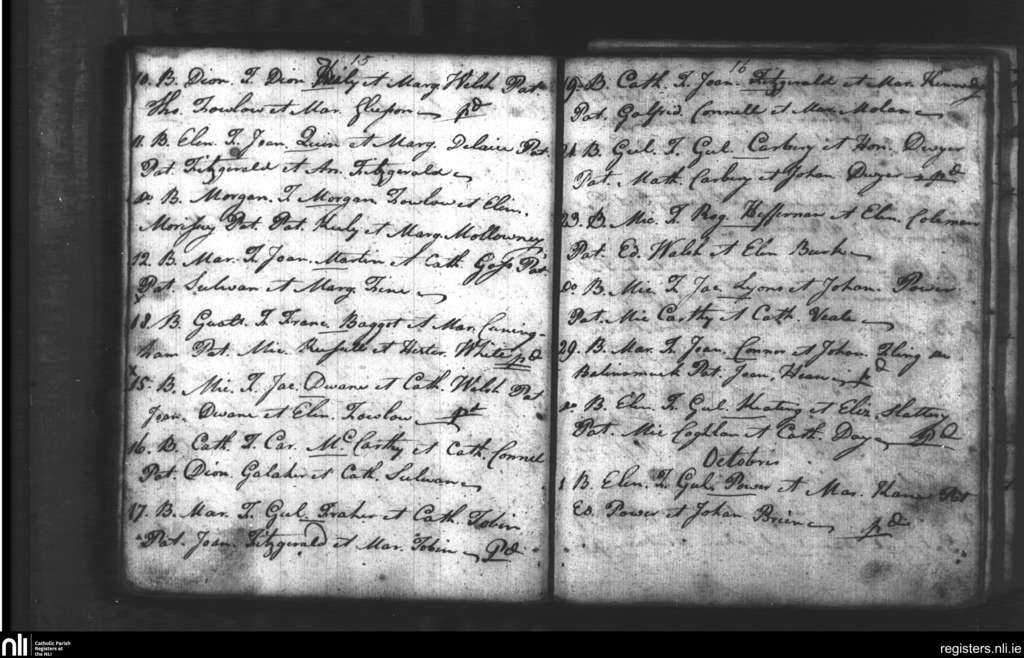 15
10. B. Dion. F. Dion et Marg. Welsh Pat.
Tho. Fowlow et Mar. Gleeson pd
11. B. Elen. F. Joan. Quin et Marg. Delaire Pat.
Pat. Fitzgerald et An. Fitzgerald
do B. Morgan. F. Morgan Fowlow et Elen.
Morissy Pat. Pat. Healy et Marg. Mollowney
12. B. Mar. F. Joan. Martin et Cath. Goss Pat.
Pat. Sulivan et Marg.
13. B. Gualt. F. Franc. Baggot et Mar. Cuning-
ham Pat. Mic. et Hester. White pd
15. B. Mic. F. Jac. Dwane et Cath. Welsh Pat
Joan. Dwane et Elen. Fowlow pd
16. B. Cath. F. Car. McCarthy et Cath. Connel
Pat. Dion. Galaher et Cath. Sulivan
17. B. Mar. F. Gul. Fraher et Cath. Tobin
Pat. Joan. Fitzgerald et Mar. Tobin Pd.
16
19. B. Cath. F. Joan. Fitzgerald et Mar. Kennedy
Pat. Galfrid. Connell et Mar. Molan
21 B. Gul. F. Gul. Carbury et Hon. Dwyer
Pat. Math. Carbury et Johan Dwyer pd
23. B. Mic. F. Rog. Heffernan et Elen. Coleman
Pat. Ed. Walsh et Elen Burk
do B. Mic. F. Jac. Lyons et Johan. Power
Pat. Mic Carthy et Cath. Veale
29. B. Mar. F. Joan. Connor et Johan. Fling
Pat. Joan. pd
do B. Elen. F. Gul. Keating et Eliz. Slattery
Pat. Mic Coghlan et Cath. Day pd
Octobris
1 B. Elen. F. Gul. Power et Mar. Pat
Ed. Power et Johan Brien pd
nli
Catholic Parish
Registers at
the NLI
registers.nli.ie